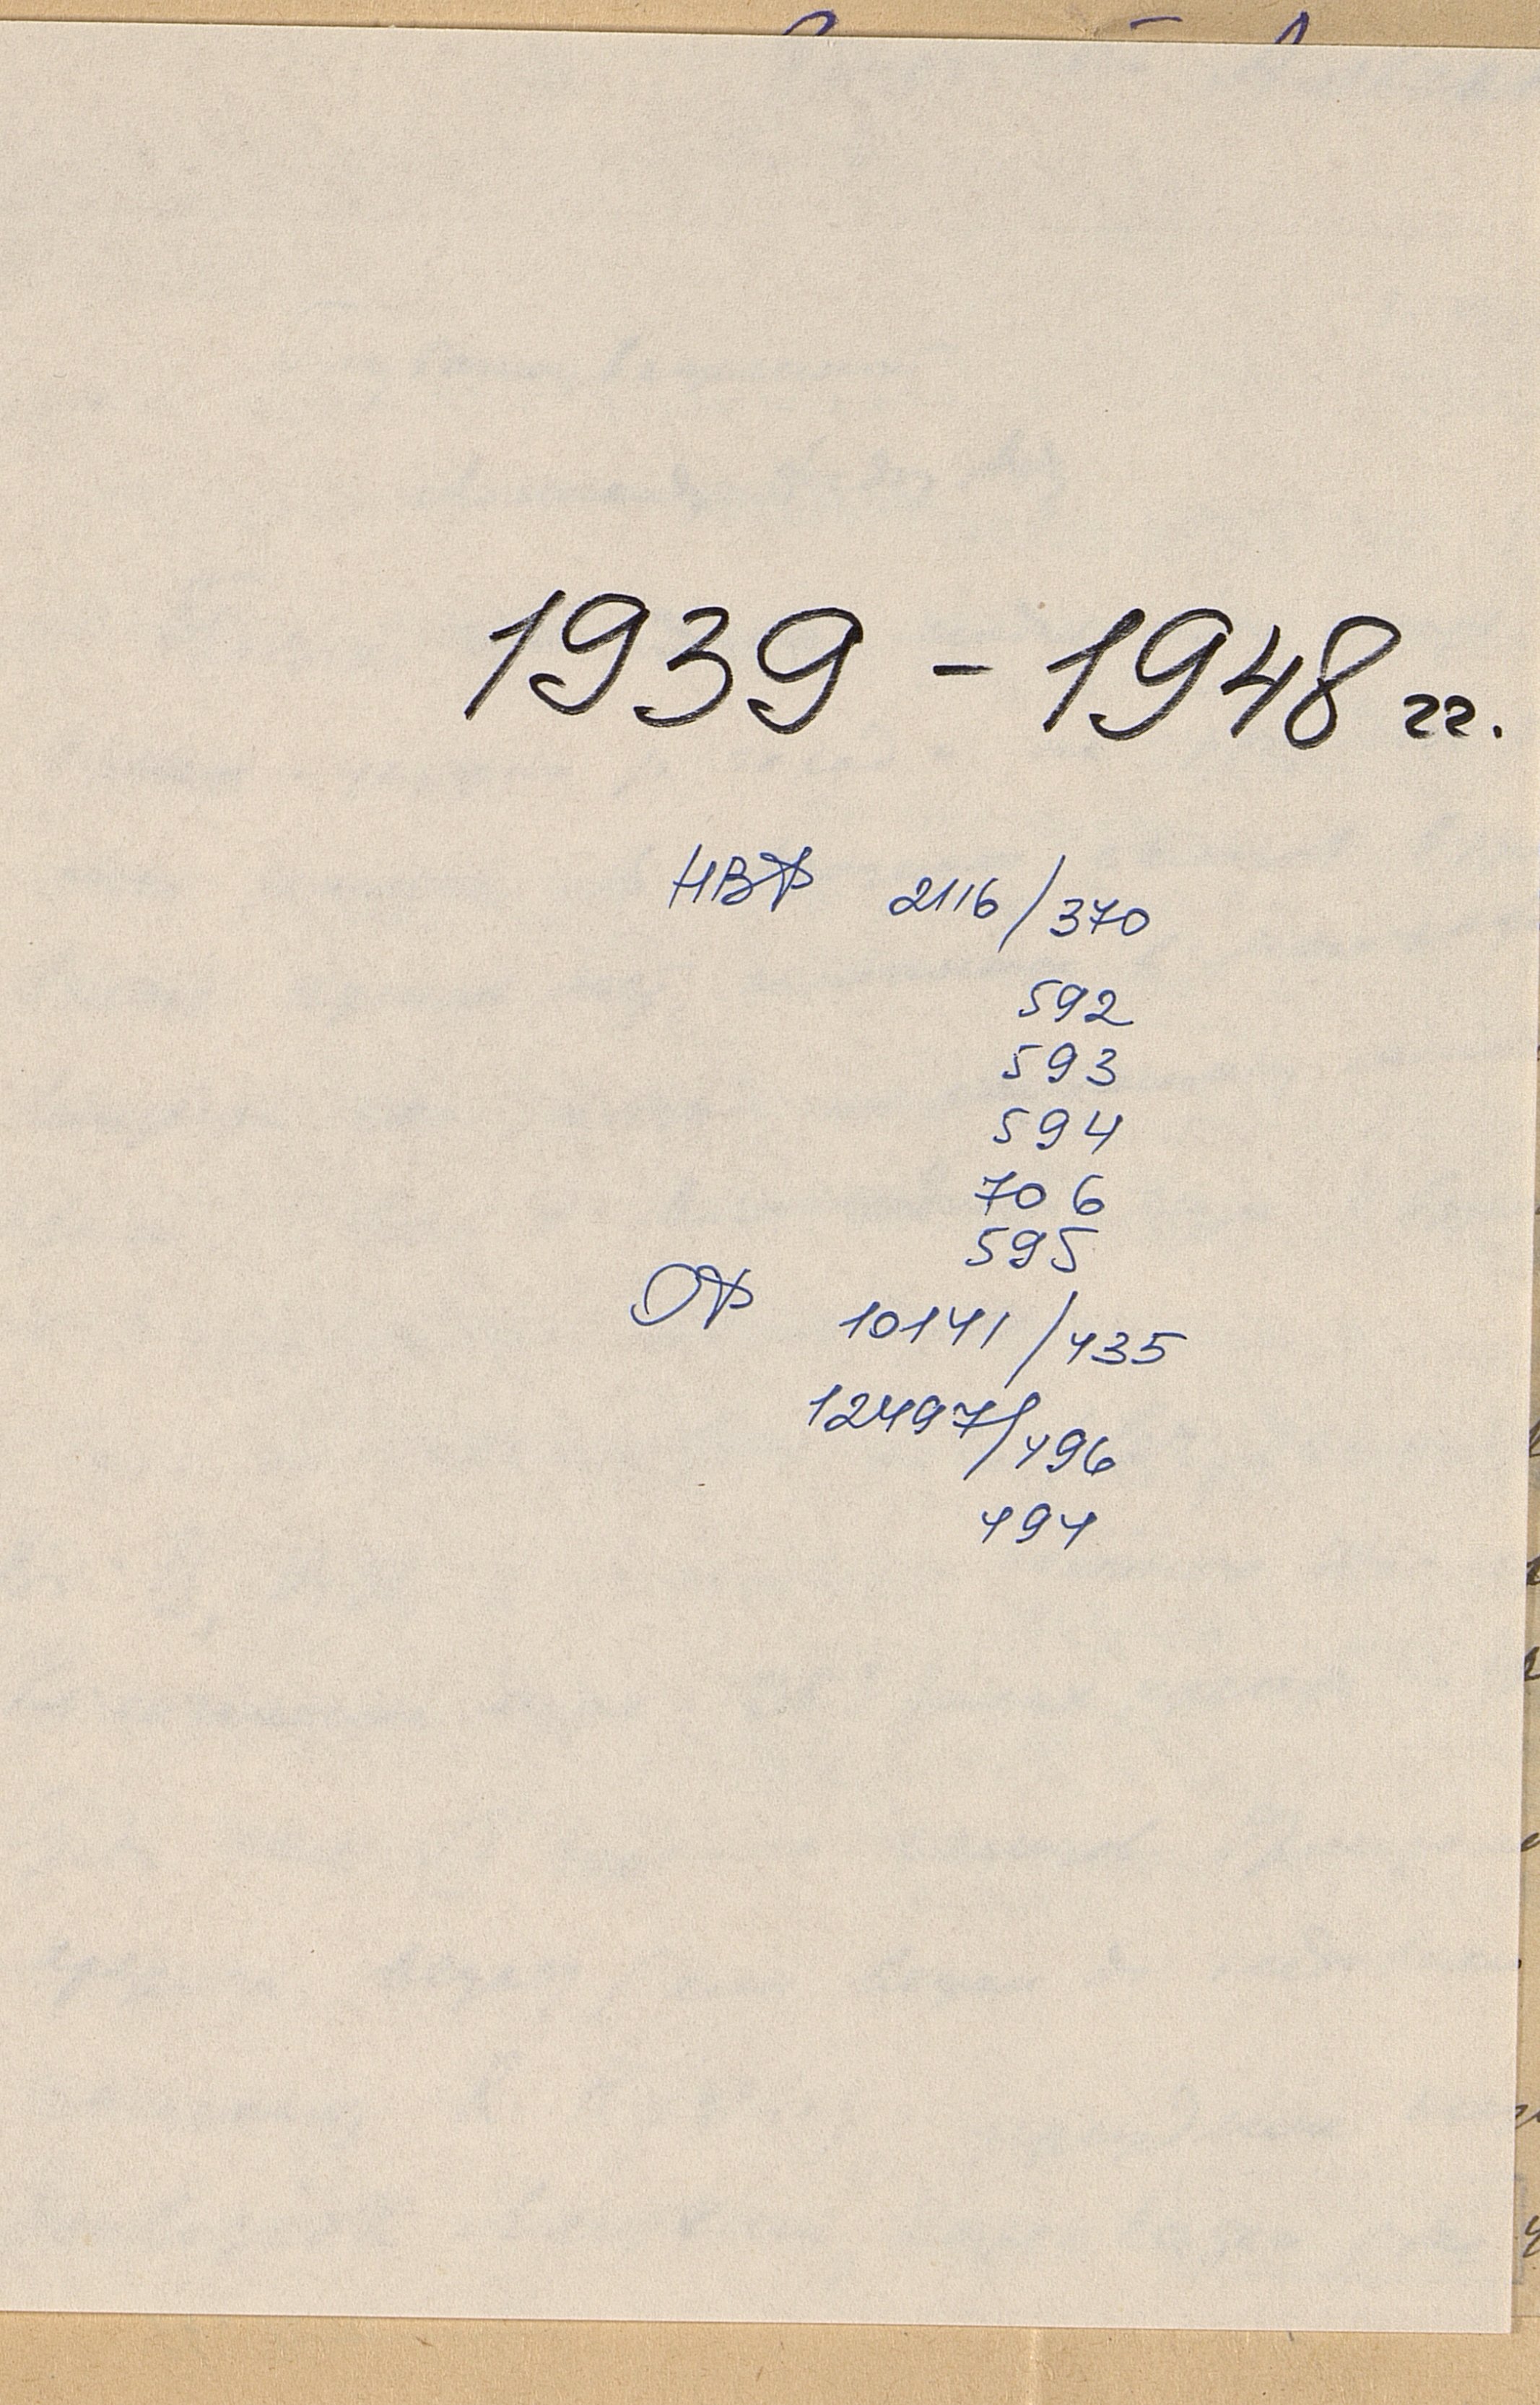 1939 - 1948 гг.
НВФ 2116/370
592
593
594
706
595
ОФ 10141/435
12497/496
494